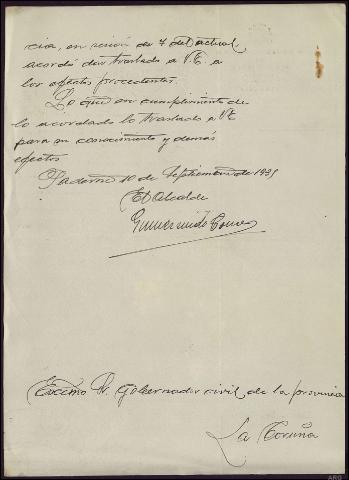 cia, en sesión de 7 del actual
acordó dar traslado a V.E a
los efectos procedentes.
Lo que en cumplimiento de
lo acordado lo traslado a VE
para su conocimiento y demás
efectos
10 de Septiembre de 1935
El Alcalde
Gumersindo
Excmo Sr. Gobernador civil de la provincia
La Coruña
ARG